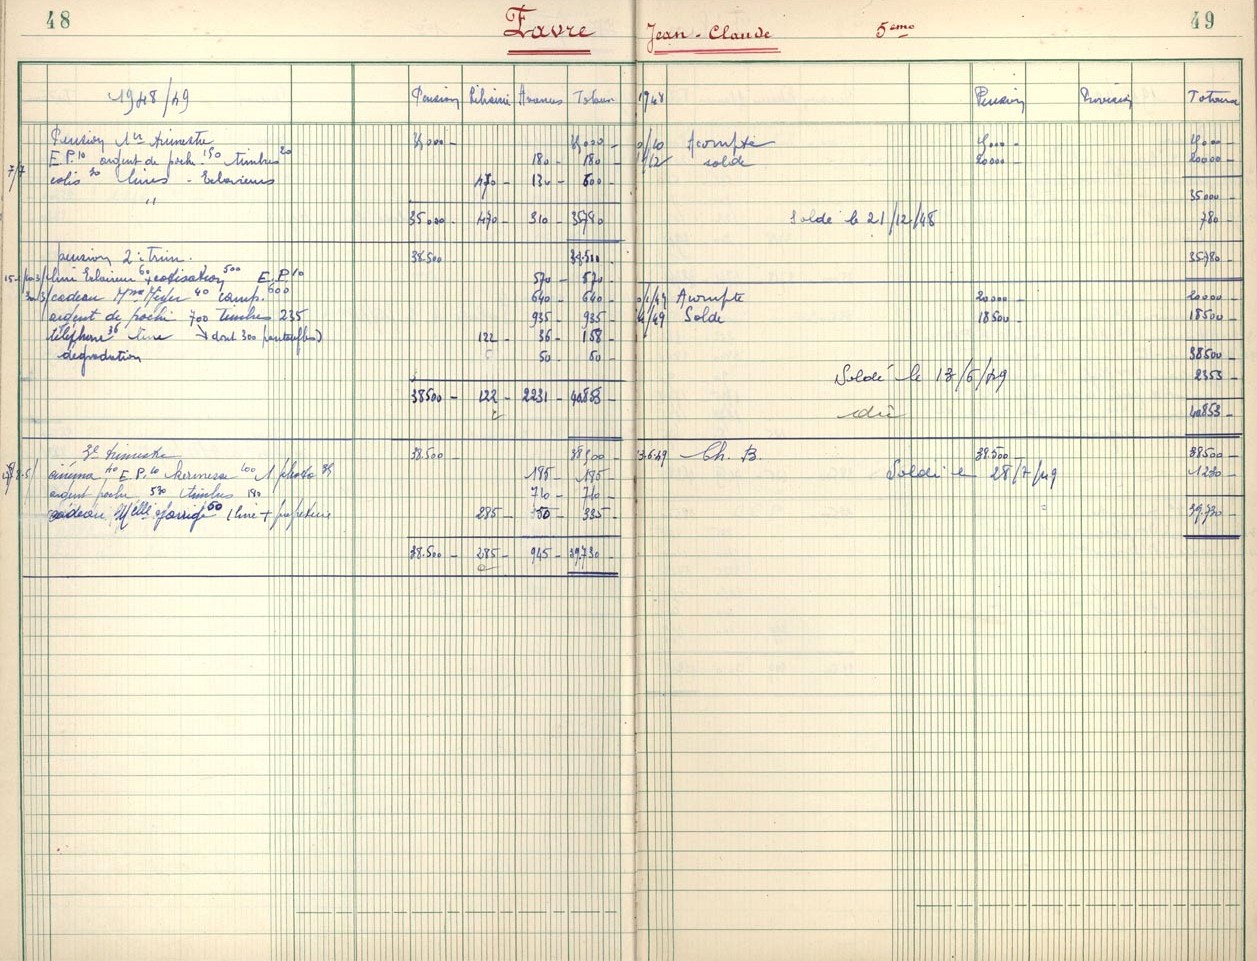 48
Favre
Jean-Claude
5ème
49
1948/49
Pension Librairie Avances Totaux
1948
Pension Provision Totaux
Pension 1er trimestre
E.P.10 argent de poche 150 timbres 20 180 - 180 -
colis livres - Eclaireurs 470 - 130 - 600 -
"
35000 - 470 - 310 - 35780 -
Acompte
solde 20000 - 20000 -
35000 -
Soldé le 21/12/48 780 -
35780 -
pension 2e trim. 38.500 38.500
livre Eclaireur 60 + cotisation 500 E.P.10 570 - 570 -
cadeau Mme 40 camp. 600 640 - 640 -
argent de poche 700 timbres 235 935 - 935 -
téléphone 36 livre dont 300 pantoufles) 122 - 36 - 158 -
dégradation 50 - 50 -
38500 - 122 - 2231 - 40853 -
Acompte 20000 - 20000 -
Solde 18500 - 18500 -
38500 -
Soldé le 13/6/49 2353 -
40853 -
3e trimestre 38.500 - 38.500 -
cinéma E.P.10 kermesse 100 1 photo 195 - 195 -
argent poche 530 timbres 180 710 - 710 -
cadeau Melle 1 livre + 285 - 50 - 335 -
38.500 - 285 - 945 - 39.730 -
3.6.49 Ch. B. 38.500 38500 -
Soldé le 28/7/49 1230 -
39.730 -